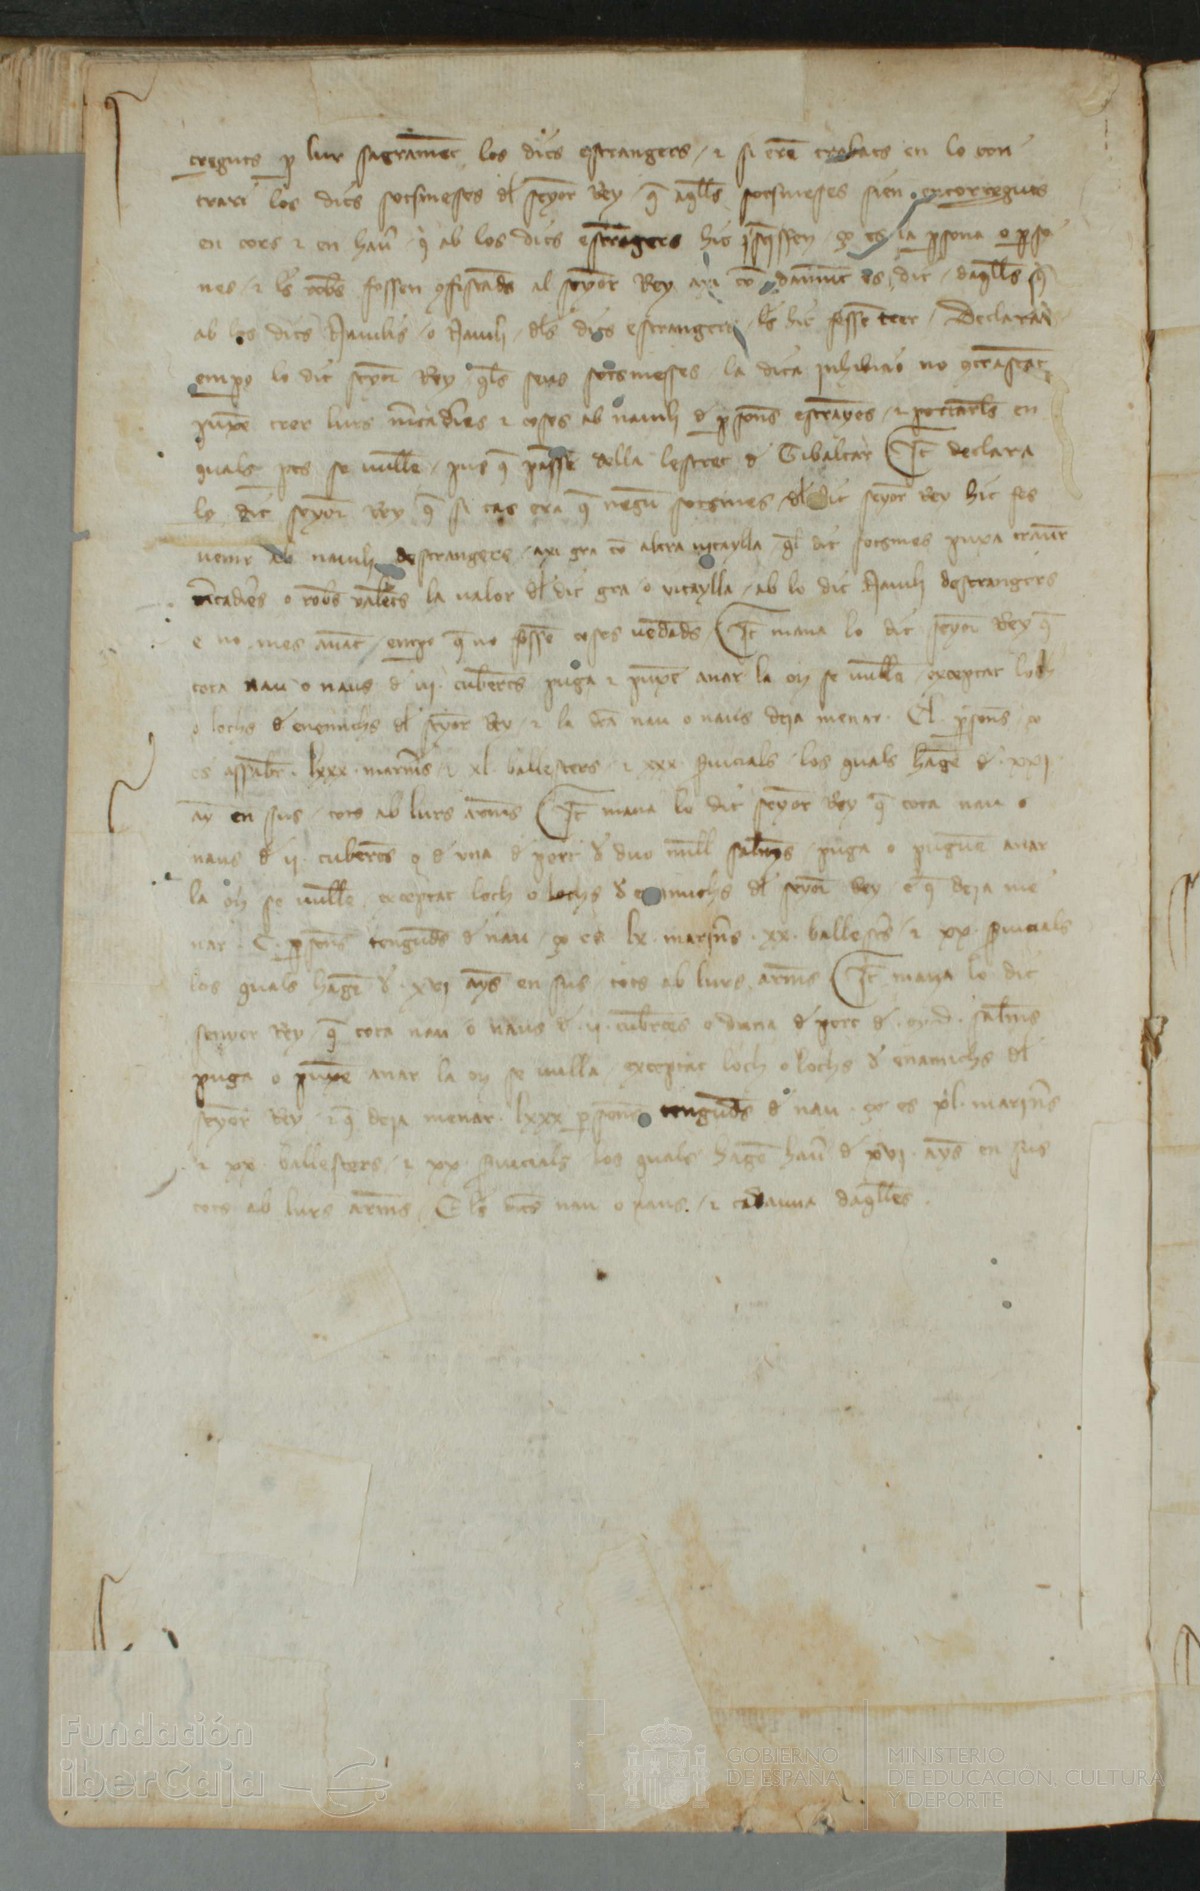 creguts p lur sagrament los dits estrangers / ⁊ si eren trobats en lo con
trari los dits sotsmeses dl senyor Rey / q aqlls sotsmeses sien encorreguts
en cors ⁊ en haver / q ab los dits estrangers hic / ço es la psona o pso
nes / ⁊ ls robes fossen confiscades al senyor Rey axi com damunt es dit / daqlls
ab los dits navilis o navili / dls dits estrangers / hic fossen / Declaran
empo lo dit senyor Rey / qls seus sotsmeses la dita inhibicio no contrastant
puxen trer lurs mercaderies ⁊ coses ab navili de psones estranyes / ⁊ portarls en
quals pts se vullen / pus q passen della lestret de Gibaltar It declara
lo dit senyor Rey q si cas era q negun sotsmes dl dit senyor Rey hic fes
venir ab navili destrangers / axi gra com altra vitaylla / ql dit sotsmes puxa traure
mercaderies o robes valents la valor dl dit gra o vitaylla / ab lo dit navili destrangers
e no mes avant / empo q no fossen coses vedades It mana lo dit senyor Rey q
tota nau o naus de iij cubertes puga ⁊ puxe anar la on se vulle / exceptat loch
o lochs de enemichs dl senyor Rey / ⁊ la dita nau o naus deja menar CL psones / ço
es assaber lxxx mariners / ⁊ xl ballesters / ⁊ xxx servicials / los quals hagen de xvj
any en sus / tots ab lurs armes It mana lo dit senyor Rey q tota nau o
naus de ij cubertes o de una de port de duo mill salmes / puga o puguen anar
la on se vulle exceptat loch o lochs de enamichs dl senyor Rey / e q deja me
nar C psones tengudes de nau / ço es lx mariners xx ballesters / ⁊ xx servicials
los quals hagen de xvj anys en sus / tots ab lurs armes It mana lo dit
senyor Rey q tota nau o naus de ij cubertes o duna de port de salmes
puga o puxen anar la on se vulla / exceptat loch o lochs de enamichs dl
senyor Rey / ⁊ q deja menar lxxx psones tengudes de nau ço es xl mariners
⁊ xx ballesters / ⁊ xx servicials / los quals hagen haver de xvj anys en sus
tots ab lurs armes / E ls dits nau o naus / ⁊ cadauna daqlles
Fundación
iberCaja
GOBIERNO
DE ESPAÑA
MINISTERIO
DE EDUCACIÓN, CULTURA
Y DEPORTE